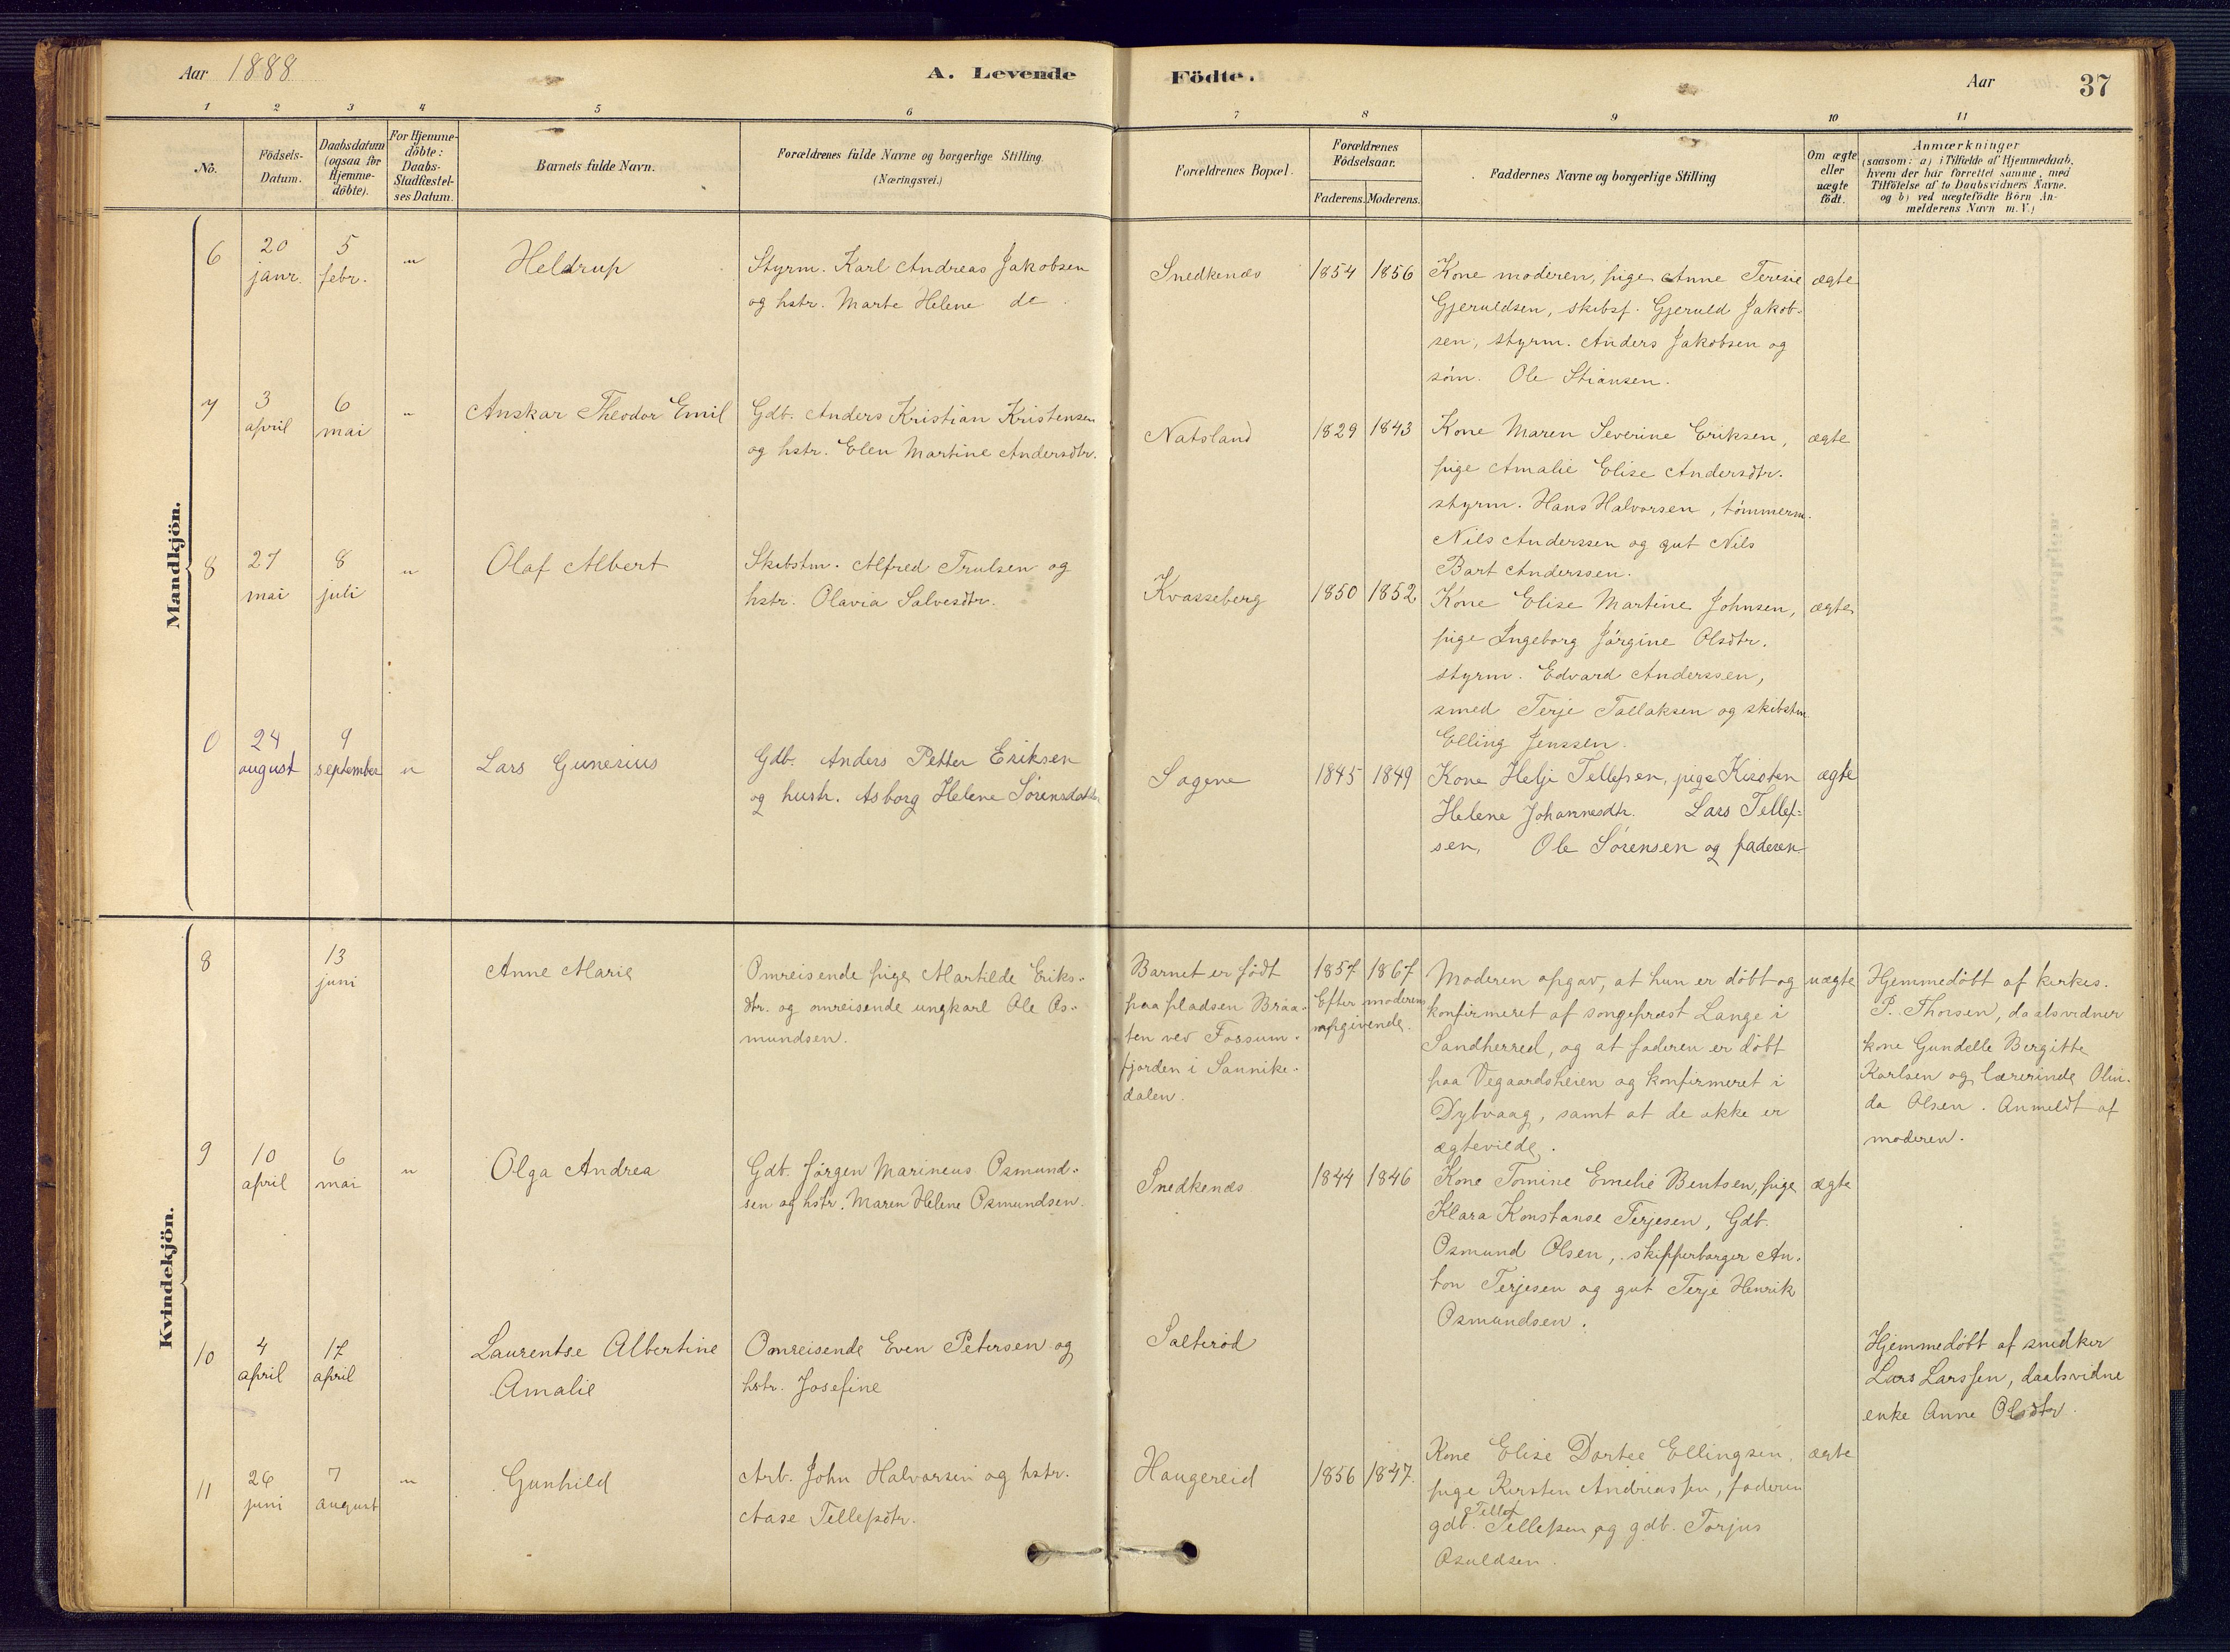 Aar 1888
A. Levende Födte.
Aar
37
1 2 3 4 5 6 7 8 9 10 11
No.
Födsels-
Datum.
Daabsdatum
(ogsaa for
Hjemme-
döbte).
For Hjemme-
döbte:
Daabs-
Stadfæstel-
ses Datum.
Barnets fulde Navn.
Forældrenes fulde Navne og borgerlige Stilling.
(Næringsvei.)
Forældrenes Bopæl.
Forældrenes
Födselsaar.
Faderens. Moderens.
Faddernes Navne og borgerlige Stilling
Om ægte
eller
uægte
födt.
Anmærkninger
(saasom: a) i Tilfælde af Hjemmedaab,
hvem der har forrettet samme, med
Tilföielse af to Daabsvidners Navne.
og b) ved uægtefödte Börn An-
melderens Navn m. V.)
Mandkjön.
6
20
janr.
5
febr.
"
Heldrup
Styrm. Karl Andreas Jakobsen
og hstr. Marte Helene do.
Snedkenæs
1854 1856
Kone moderen, pige Anne Teresie
Gjeruldsen, skibsf. Gjeruld Jakob-
sen, styrm. Anders Jakobsen og
söm. Ole Stiansen.
ægte
7
3
april
6
mai
"
Anskar Theodor Emil
Gdb. Anders Kristian Kristensen
og hstr. Elen Martine Andersdtr.
Natsland
1829 1843
Kone Maren Severine Eriksen,
pige Amalie Elise Andersdtr.
styrm. Hans Halvorsen, tömmerm.
Nils Anderssen og gut Nils
Bart Anderssen.
ægte
8
27
mai
8
juli
"
Olaf Albert
Skibstm. Alfred Trulsen og
hstr. Olavia Salvesdtr.
Kvasseberg
1850 1852
Kone Elise Martine Johnsen,
pige Ingeborg Jörgine Olsdtr.
styrm. Edvard Anderssen,
smed Terje Tallaksen og skibstm.
Elling Jenssen.
ægte
0
24
august
9
september
"
Lars Gunerius
Gdb. Anders Petter Eriksen
og hustr. Asborg Helene Sörensdatter
Sagene
1845 1849
Kone Helje Tellefsen, pige Kirsten
Helene Johannesdtr. Lars Tellef-
sen, Ole Sörensen og faderen.
ægte
Kvindekjön.
8
13
juni
Anne Marie
Omreisende pige Martilde Eriks-
dtr. og omreisende ungkarl Ole Os-
mundsen.
Barnet er födt
paa pladsen Braa-
ten ved Fossum-
fjorden i Sannike-
dalen.
1857 1867
Efter moderens
opgivende.
Moderen opgav, at hun er döbt og
konfirmeret af sognepræst Lange i
Sandherred, og at faderen er döbt
paa Vegaardsheien og konfirmeret i
Dybvaag, samt at de ikke er
ægteviede.
uægte
Hjemmedöbt af kirkes.
P. Thorsen, daabsvidner
kone Gundelle Bergitte
Karlsen og lærerinde Olin-
da Olsen. Anmeldt af
moderen.
9
10
april
6
mai
"
Olga Andrea
Gdb. Jörgen Marineus Osmund-
sen og hstr. Maren Helene Osmundsen.
Snedkenæs
1844 1846
Kone Tomine Emelie Bentsen, pige
Klara Konstanse Terjesen, Gdb.
Osmund Olsen, skipperborger An-
ton Terjesen og gut Terje Henrik
Osmundsen.
ægte
10
4
april
17
april
Laurentse Albertine
Amalie
Omreisende Even Petersen og
hstr. Josefine
Salteröd
Hjemmedöbt af snedker
Lars Larssen, daabsvidne
enke Anne Olsdtr.
11
26
juni
7
august
"
Gunhild
Arb. John Halvorsen og hstr.
Aase Tellefsdtr.
Haugereid
1856 1847.
Kone Elise Dortee Ellingsen,
pige Kirsten Andreassen, faderen
gdb. Tellef Tellefsen og gdb. Torjus
Osuldsen.
ægte